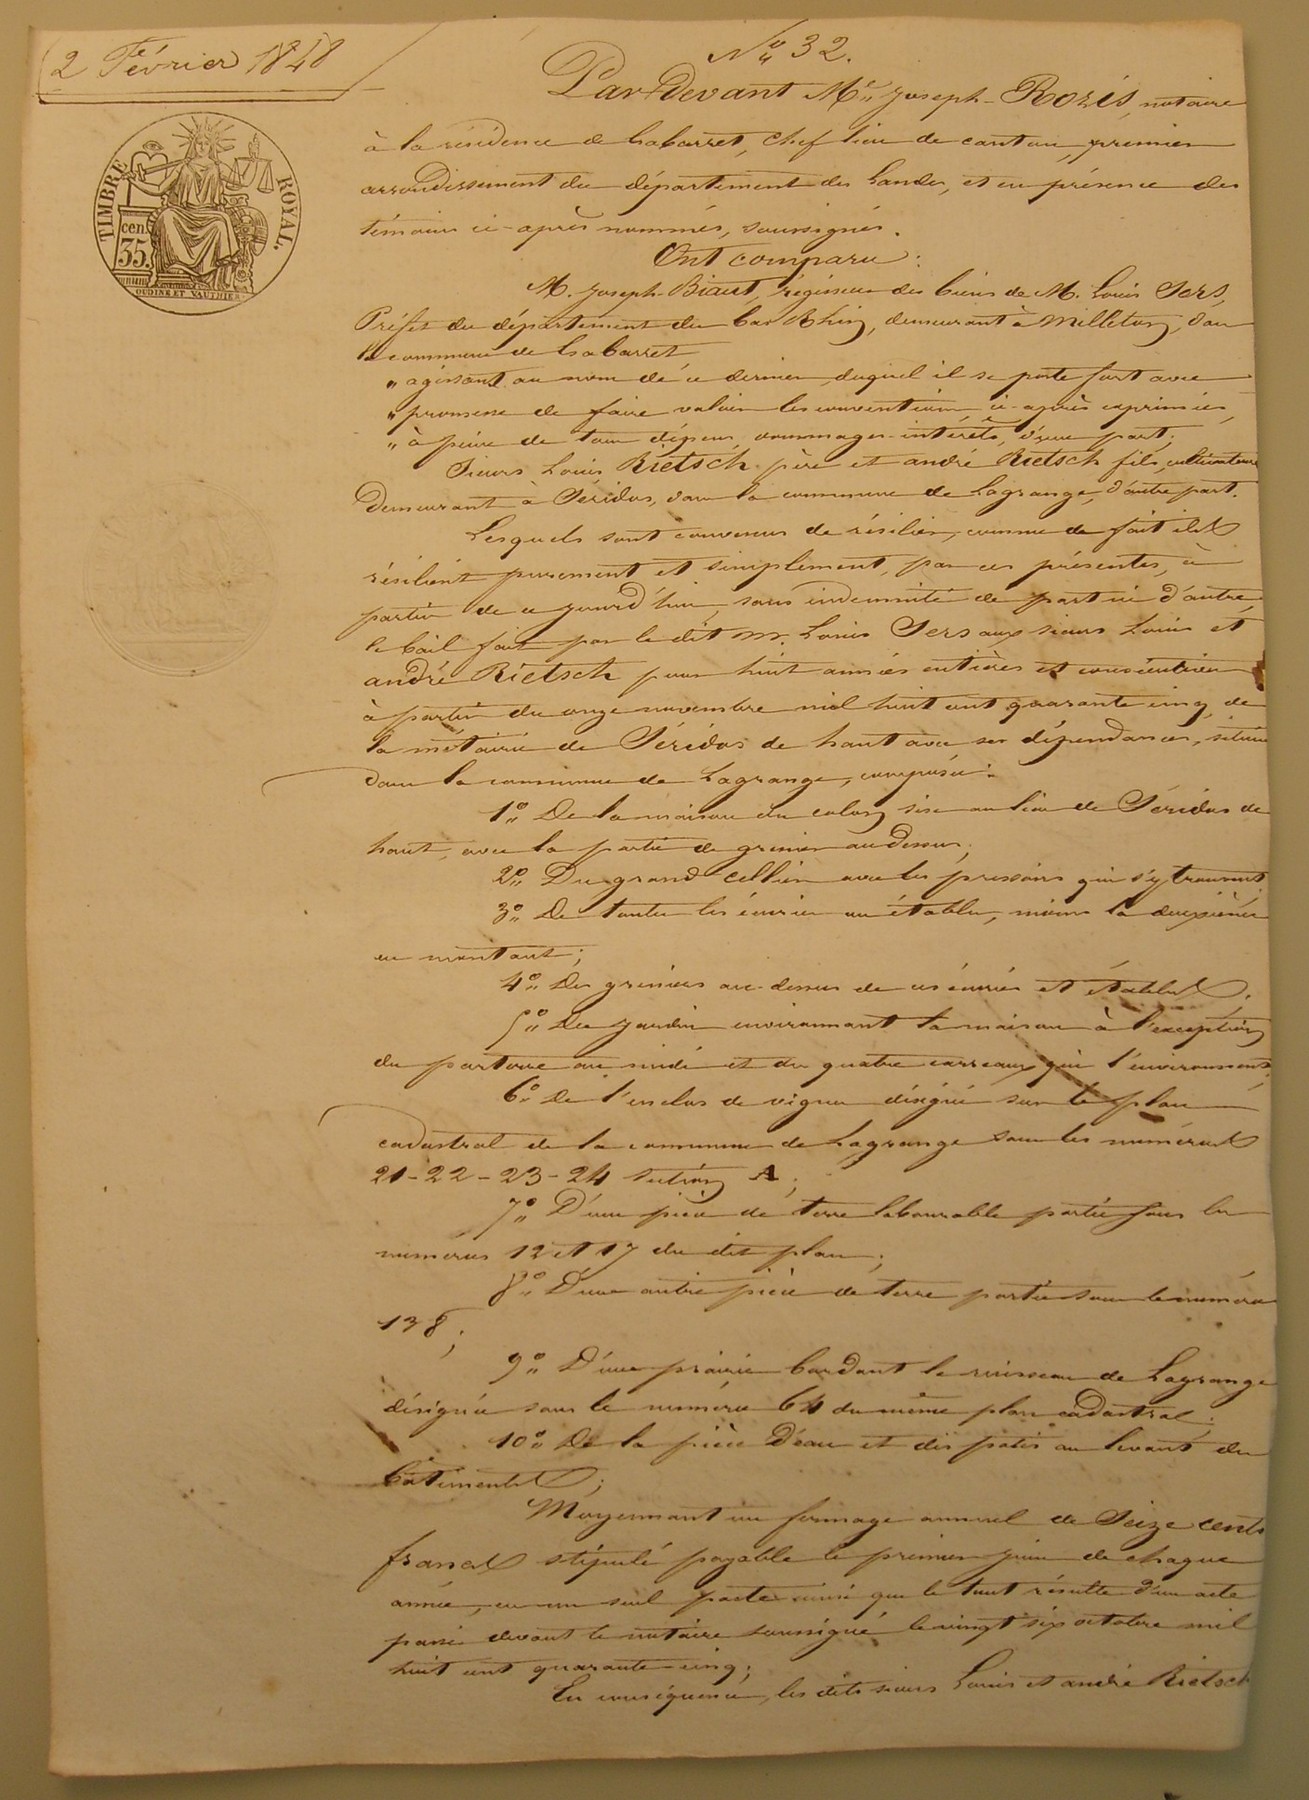 2 Février 1848
No 32.
Par Devant Me Joseph Rozis, notaire
à la résidence de Labarret, chef lieu de canton, premier
arrondissement du département des Landes, et en présence des
témoins ci-après nommés, soussignés.
TIMBRE ROYAL.
cen. 35.
OUDINE ET VAUTHIER
Ont comparu :
M. Joseph Biaut, régisseur des biens de M. Louis Sers,
Préfet du département du bas Rhin, demeurant à Milleton, dans
la commune de Labarret
" agissant au nom de ce dernier duquel il se porte fort avec
" promesse de faire valoir les conventions ci-après exprimées,
" à peine de tous dépens, dommages-intérêts, d'une part;
Sieurs Louis Rietsch père et andré Rietsch fils, cultivateurs
Demeurant à Séridos, dans la commune de Lagrange, d'autre part.
Lesquels sont convenus de résilier, comme de fait ils
résilient purement et simplement, par ces présentes, à
partir de ce jourd'hui, sans indemnité de part ni d'autre,
le bail fait par le dit M. Louis Sers aux sieurs Louis et
andré Rietsch pour huit années entières et consécutives
à partir du onze novembre mil huit cent quarante cinq, de
la métairie de Séridos de haut avec ses dépendances, située
dans la commune de Lagrange, composée :
1o De la maison du colon, sise au lieu de Séridos de
haut, avec la partie de grenier au dessus;
2o Du grand cellier avec les pressoirs qui s'y trouvent;
3o De toutes les écuries ou étables, moins la deuxième
en montant;
4o Des greniers au-dessus de ces écuries et étables;
5o Du jardin environnant la maison à l'exception
du parterre au midi et des quatre carreaux qui l'environnent;
6o De l'enclos de vigne désigné sur le plan
cadastral de la commune de Lagrange sous les numéros
21-22-23-24 section A;
7o D'une pièce de terre labourable portée sous les
numéros 12 et 17 du dit plan;
8o D'une autre pièce de terre portée sous le numéro
138;
9o D'une prairie bordant le ruisseau de Lagrange
désignée sous le numéro 64 du même plan cadastral;
10o De la pièce d'eau et des patis au levant des
bâtiments;
Moyennant un fermage annuel de Seize cents
francs stipulé payable le premier juin de chaque
année, en un seul pacte ainsi que le tout résulte d'un acte
passé devant le notaire soussigné le vingt six octobre mil
huit cent quarante-cinq;
En conséquence, les dits sieurs Louis et andré Rietsch